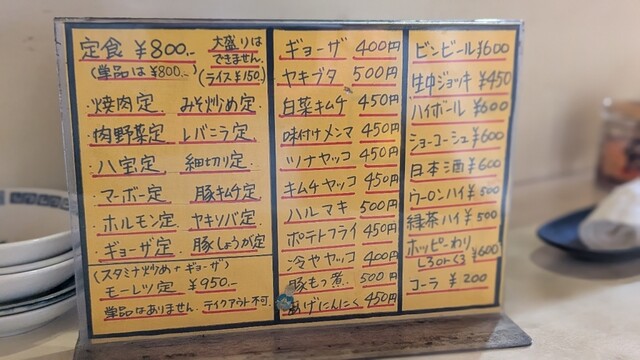 定食 ¥800.-
大盛りは
できません。
(単品は¥800.-)
(ライス¥150.)
焼肉定 みそ炒め定
肉野菜定 レバニラ定
八宝定 細切り定
マーボー定 豚キムチ定
ホルモン定 ヤキソバ定
ギョーザ定 豚しょうが定
(スタミナ炒め+ギョーザ)
モーレツ定 ¥950.-
単品はありません。テイクアウト不可.
ギョーザ 400円
ヤキブタ 500円
白菜キムチ 450円
味付けメンマ 450円
ツナヤッコ 450円
キムチヤッコ 450円
ハルマキ 500円
ポテトフライ 450円
冷ややっこ 400円
豚もつ煮. 500円
あげにんにく 450円
ビンビール¥600
生中ジョッキ ¥450
ハイボール ¥600
ショーコーシュ¥600
日本酒 ¥600
ウーロンハイ¥500
緑茶ハイ¥500
ホッピーわり
しろorくろ ¥600
コーラ ¥200